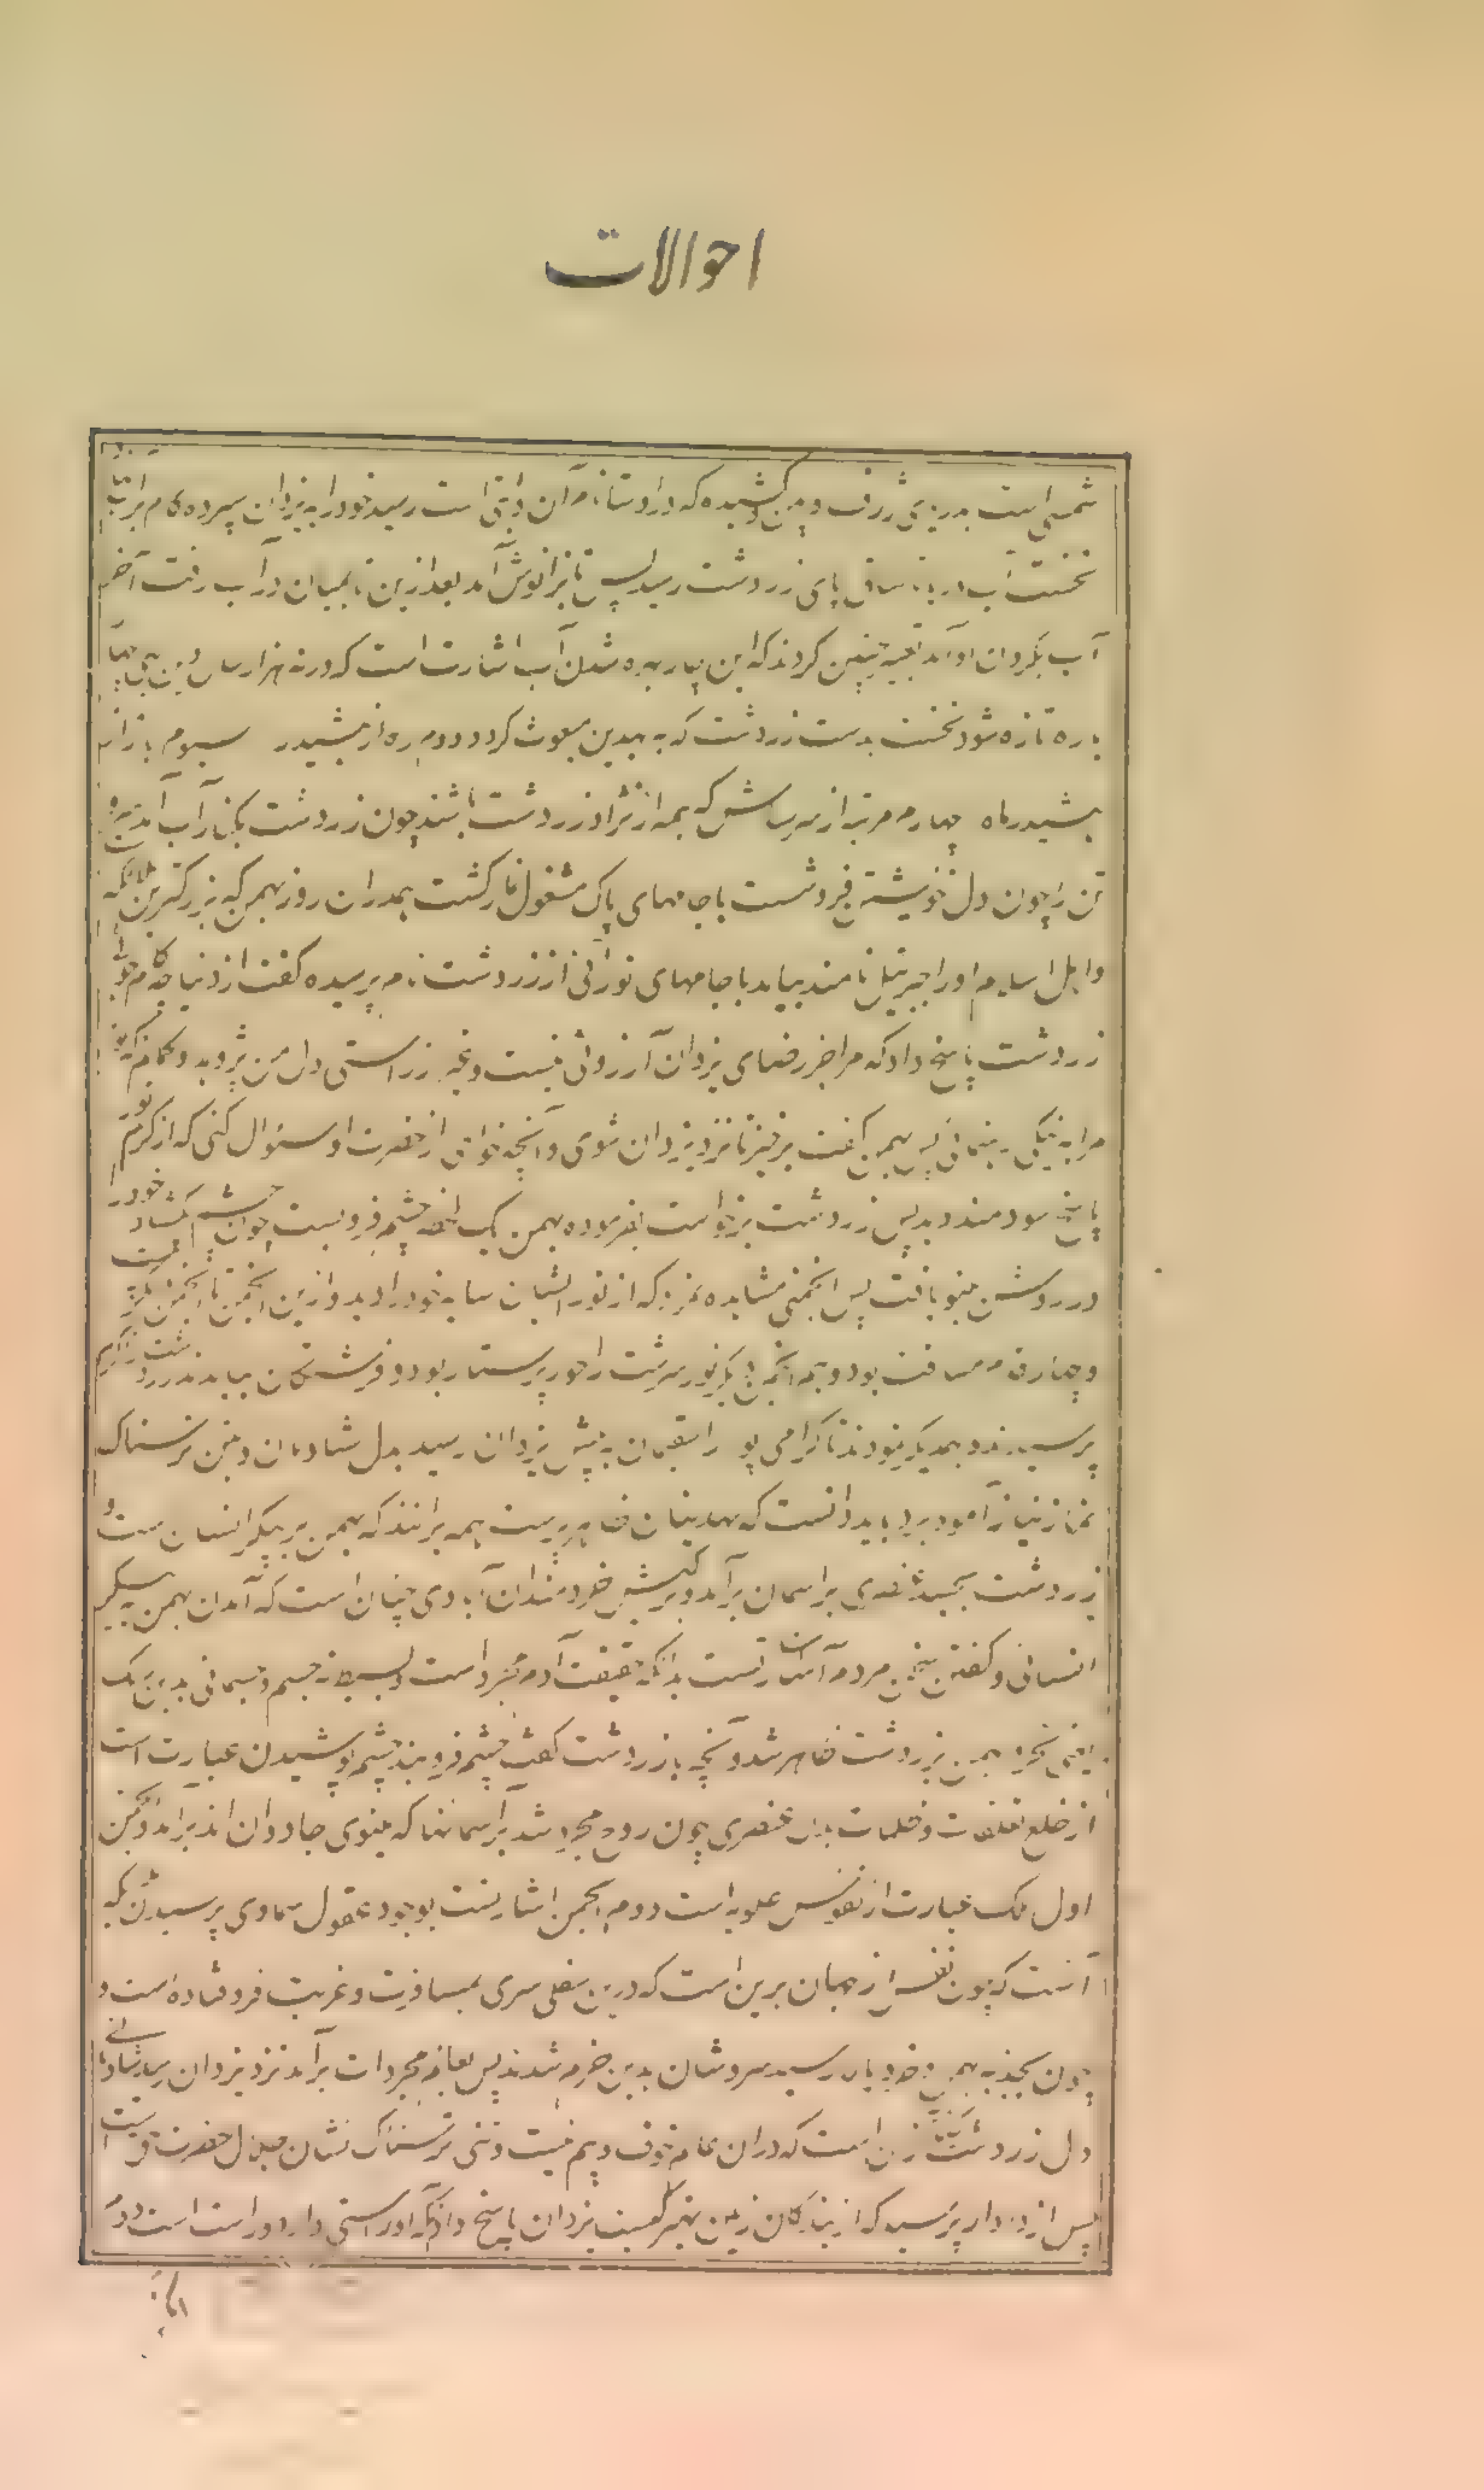 احوالات
شمسی است بدریای ژرف و پهن کشیده که در اوستا نام آن دایتی است رسید خود را به یزدان سپرده
نخست آب دریا تا ساق پای زردشت رسید پس تا بزانوش آمد بعد از این تا بمیان در آب رفت آخر
آب بگردن او آمد تعبیر چنین کردند که این چهار بهره شدن آب اشارت است که در نه هزار سال دین به چهار
باره تازه شود نخست بدست زردشت که به بهدین مبعوث کردد دوم بار از هشیدر سیوم بار از
هشیدر ماه چهارم مرتبه از سیاوش که همه از نژاد زردشت باشند چون زردشت بکنار آب آمد
تن را چون دل خویشتن فروشست با جامهای پاک مشغول نماز کشت همدران روز بهمن که بزرکترین ملائکه
و اهل اسلام او را جبرئیل نامند بیامد با جامهای نورانی از زردشت نام پرسیده کفت از دنیا چه کام
زردشت پاسخ داد که مرا جز رضای یزدان آرزوئی نیست و غیر از راستی دل من نپژوهد و کمانم که تو
مرا به نیکی رهنمائی پس بهمن کفت برخیز تا نزد یزدان شوی و آنچه خواهی از حضرت او سئوال کنی که از کرم
پاسخ سودمند دهد پس زردشت برخواست بفرموده بهمن یک لحظه چشم فرو بست چون چشم کشاد خود را
در روشن مینو یافت پس انجمنی مشاهده نمود که از نور ایشان سایه خود را دید و از این انجمن تا انجمن دیگر بیست
و چهار قدم مسافت بود و همه انجمن دیگر نور سرشت را حور پرستار بود و فرشتگان بیامدند زردشت را گرم
پرسیدند و بهمدیگر نمودند تا گرامی پور اسفیمان به پیش یزدان رسید بدل شادمان و بتن ترسناک
نماز نیاز آمود برد باید دانست که بهدینان ظاهر پرست همه برانند که بهمن بر پیکر انسان است و
زردشت بجسد عنصری بر آسمان بر آمد و بکیش خردمندان آبادی چنان است که آمدن بهمن به پیکر
انسانی و کفتن سخن مردم آسا اشارتست بدانکه حقیقت آدم مجرد است و بسیط نه جسم و جسمانی بدین رنک
یعنی تجرد بهمن بزردشت ظاهر شد و آنچه با زردشت کفت چشم فرو بند چشم پوشیدن عبارت است
از خلع تعلقات و ظلمات بدن عنصری چون روح مجرد شد بر آسمانها که مینوی جاودان اند بر آمد و انجمن
اول ملک عبارت از نفوس علویه است دوم انجمن اشارتست بوجود عقول سماوی پرسیدن همه
آنست که چون نفس از جهان برین است که درین سفلی سری بمسافرت و غربت فرو فتاده است و
چون بجذبه بهمن خرد باز رسید سروشان بدین خرم شدند پس بعالم مجردات بر آمد نزد یزدان رسید شادمانی
دل زردشت از این است که دران عالم خوف و بیم نیست و تن ترسناک نشان جلال حضرت قدس است
پس از دادار پرسید که از بندکان زمین بهتر کیست یزدان پاسخ داد آنکه او راستی دارد و راست است دوم